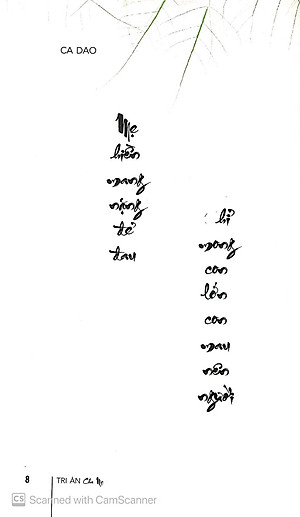 CA DAO
Mẹ
hiền
mang
nặng
đẻ
đau
mong
con
lớn
con
mau
nên
người
8
TRI ÂN Cha Mẹ
CS Scanned with CamScanner